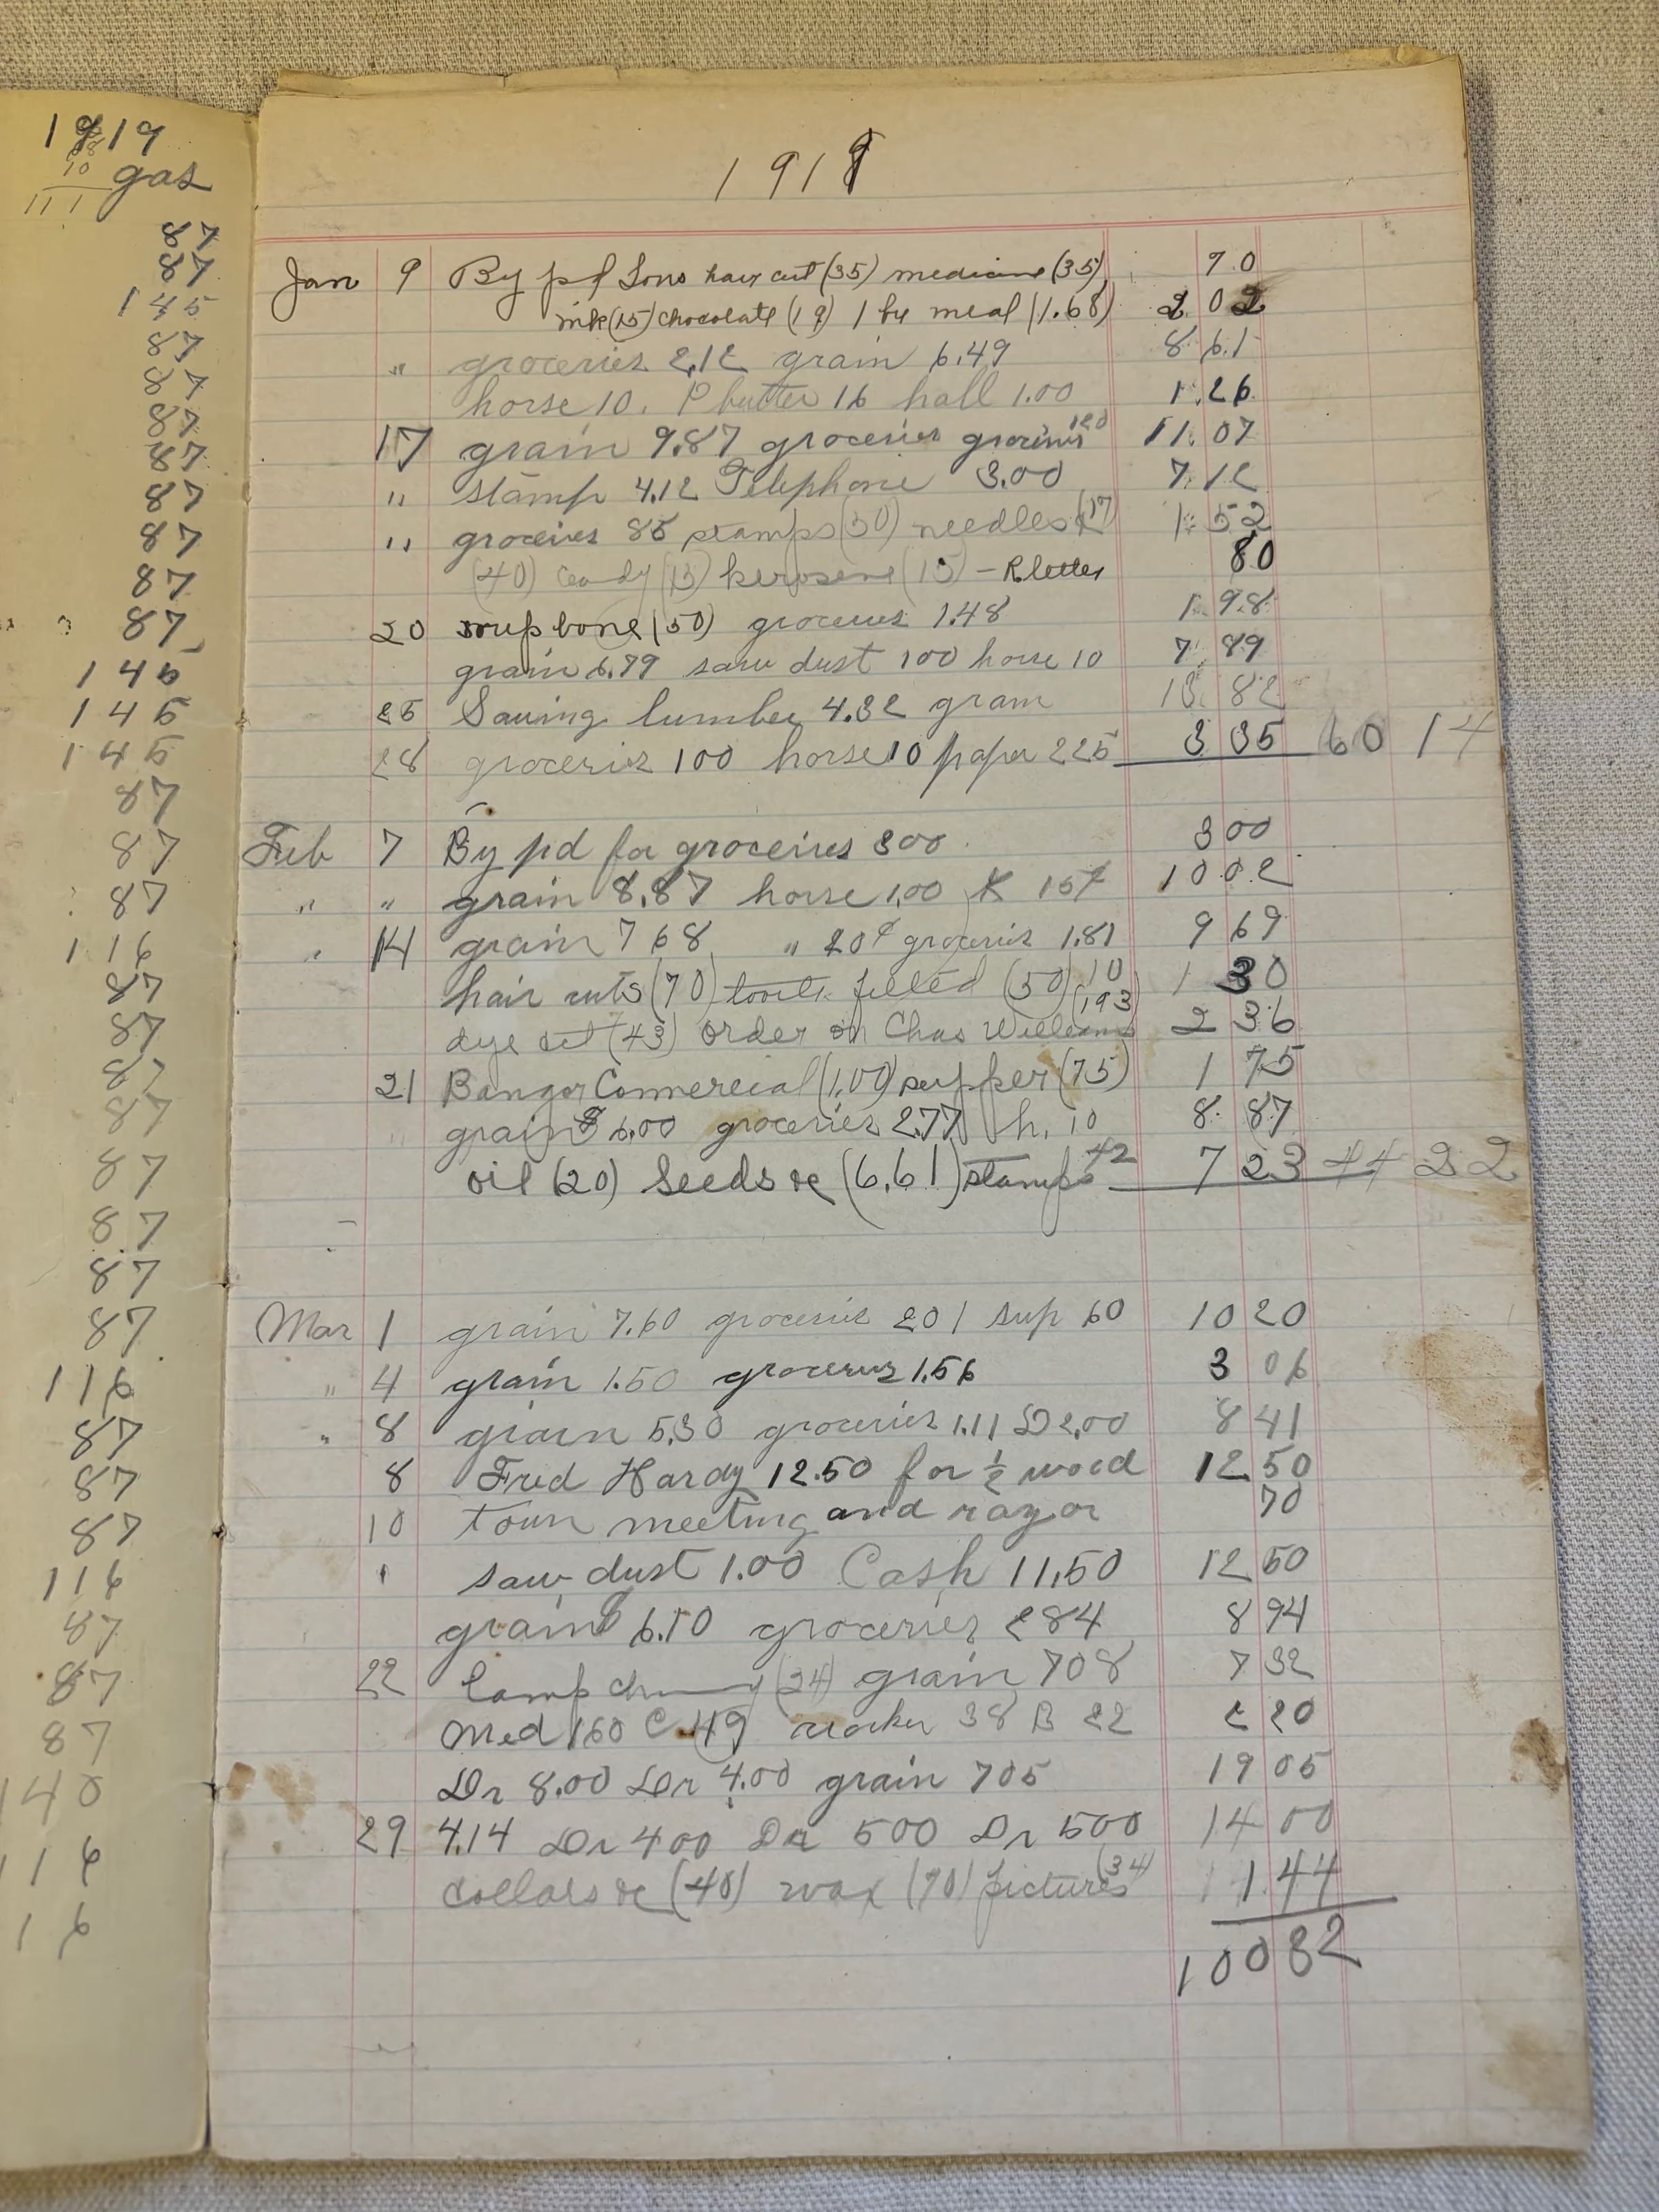 1919
10 gas
11 1
87
87
145
87
87
87
87
87
87
87
87
145
145
145
87
87
87
116
87
87
87
87
87
87
87
87
116
87
87
87
116
87
87
87
140
116
16
1919
Jan 9 By pd Sons hair cut (35) medicine (35) 70
ink (15) chocolate (19) 1 bu meal (1.68) 2 02
" groceries 2.12 grain 6.49 8 61
horse 10. P butter 16 hall 1.00 1.26
17 grain 9.87 groceries groceries 120 11.07
" stamp 4.12 Telephone 3.00 7.12
" groceries 85 stamps (50) needles (17) 1.52
(40) candy (15) kerosene (15) - R letter 80
20 soup bone (50) groceries 1.48 1.98
grain 6.79 saw dust 100 horse 10 7.89
25 Sawing lumber 4.32 grain 13.82
28 groceries 100 horse 10 paper 225 3 35 60 14
Feb 7 By pd for groceries 300. 3 00
" " grain 8.87 horse 1.00 K 15¢ 10 02
" 14 grain 768 " 20¢ groceries 1.81 9 69
hair cuts (70) tooth filled (50) 10 1 30
dye set (43) order on Chas Williams (193) 2 36
21 Bangor Commercial (1.00) supper (75) 1 75
" grain $6.00 groceries 2.77 h. 10 8 87
oil (20) Seeds &c (6.61) stamps 42 7 23 44 22
Mar 1 grain 7.60 groceries 201 sup 60 10 20
" 4 grain 1.50 groceries 1.56 3 06
" 8 grain 5.30 groceries 1.11 D 2.00 8 41
8 Fred Hardy 12.50 for ½ wood 12 50
10 town meeting and razor 70
" saw dust 1.00 Cash 11.50 12 50
grain 6.10 groceries 284 8 94
22 Lamp chimney (24) grain 708 7 32
Med 160 C. 49 38 B 22 2 20
Dr 8.00 Dr 4.00 grain 705 19 05
29 4.14 Dr 400 Dr 500 Dr 500 14 00
collars &c (40) wax (70) pictures (34) 1.44
100 82